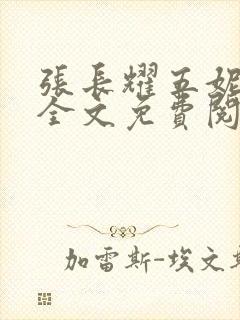 張長耀五妮
全文免費閱
加雷斯-埃文斯